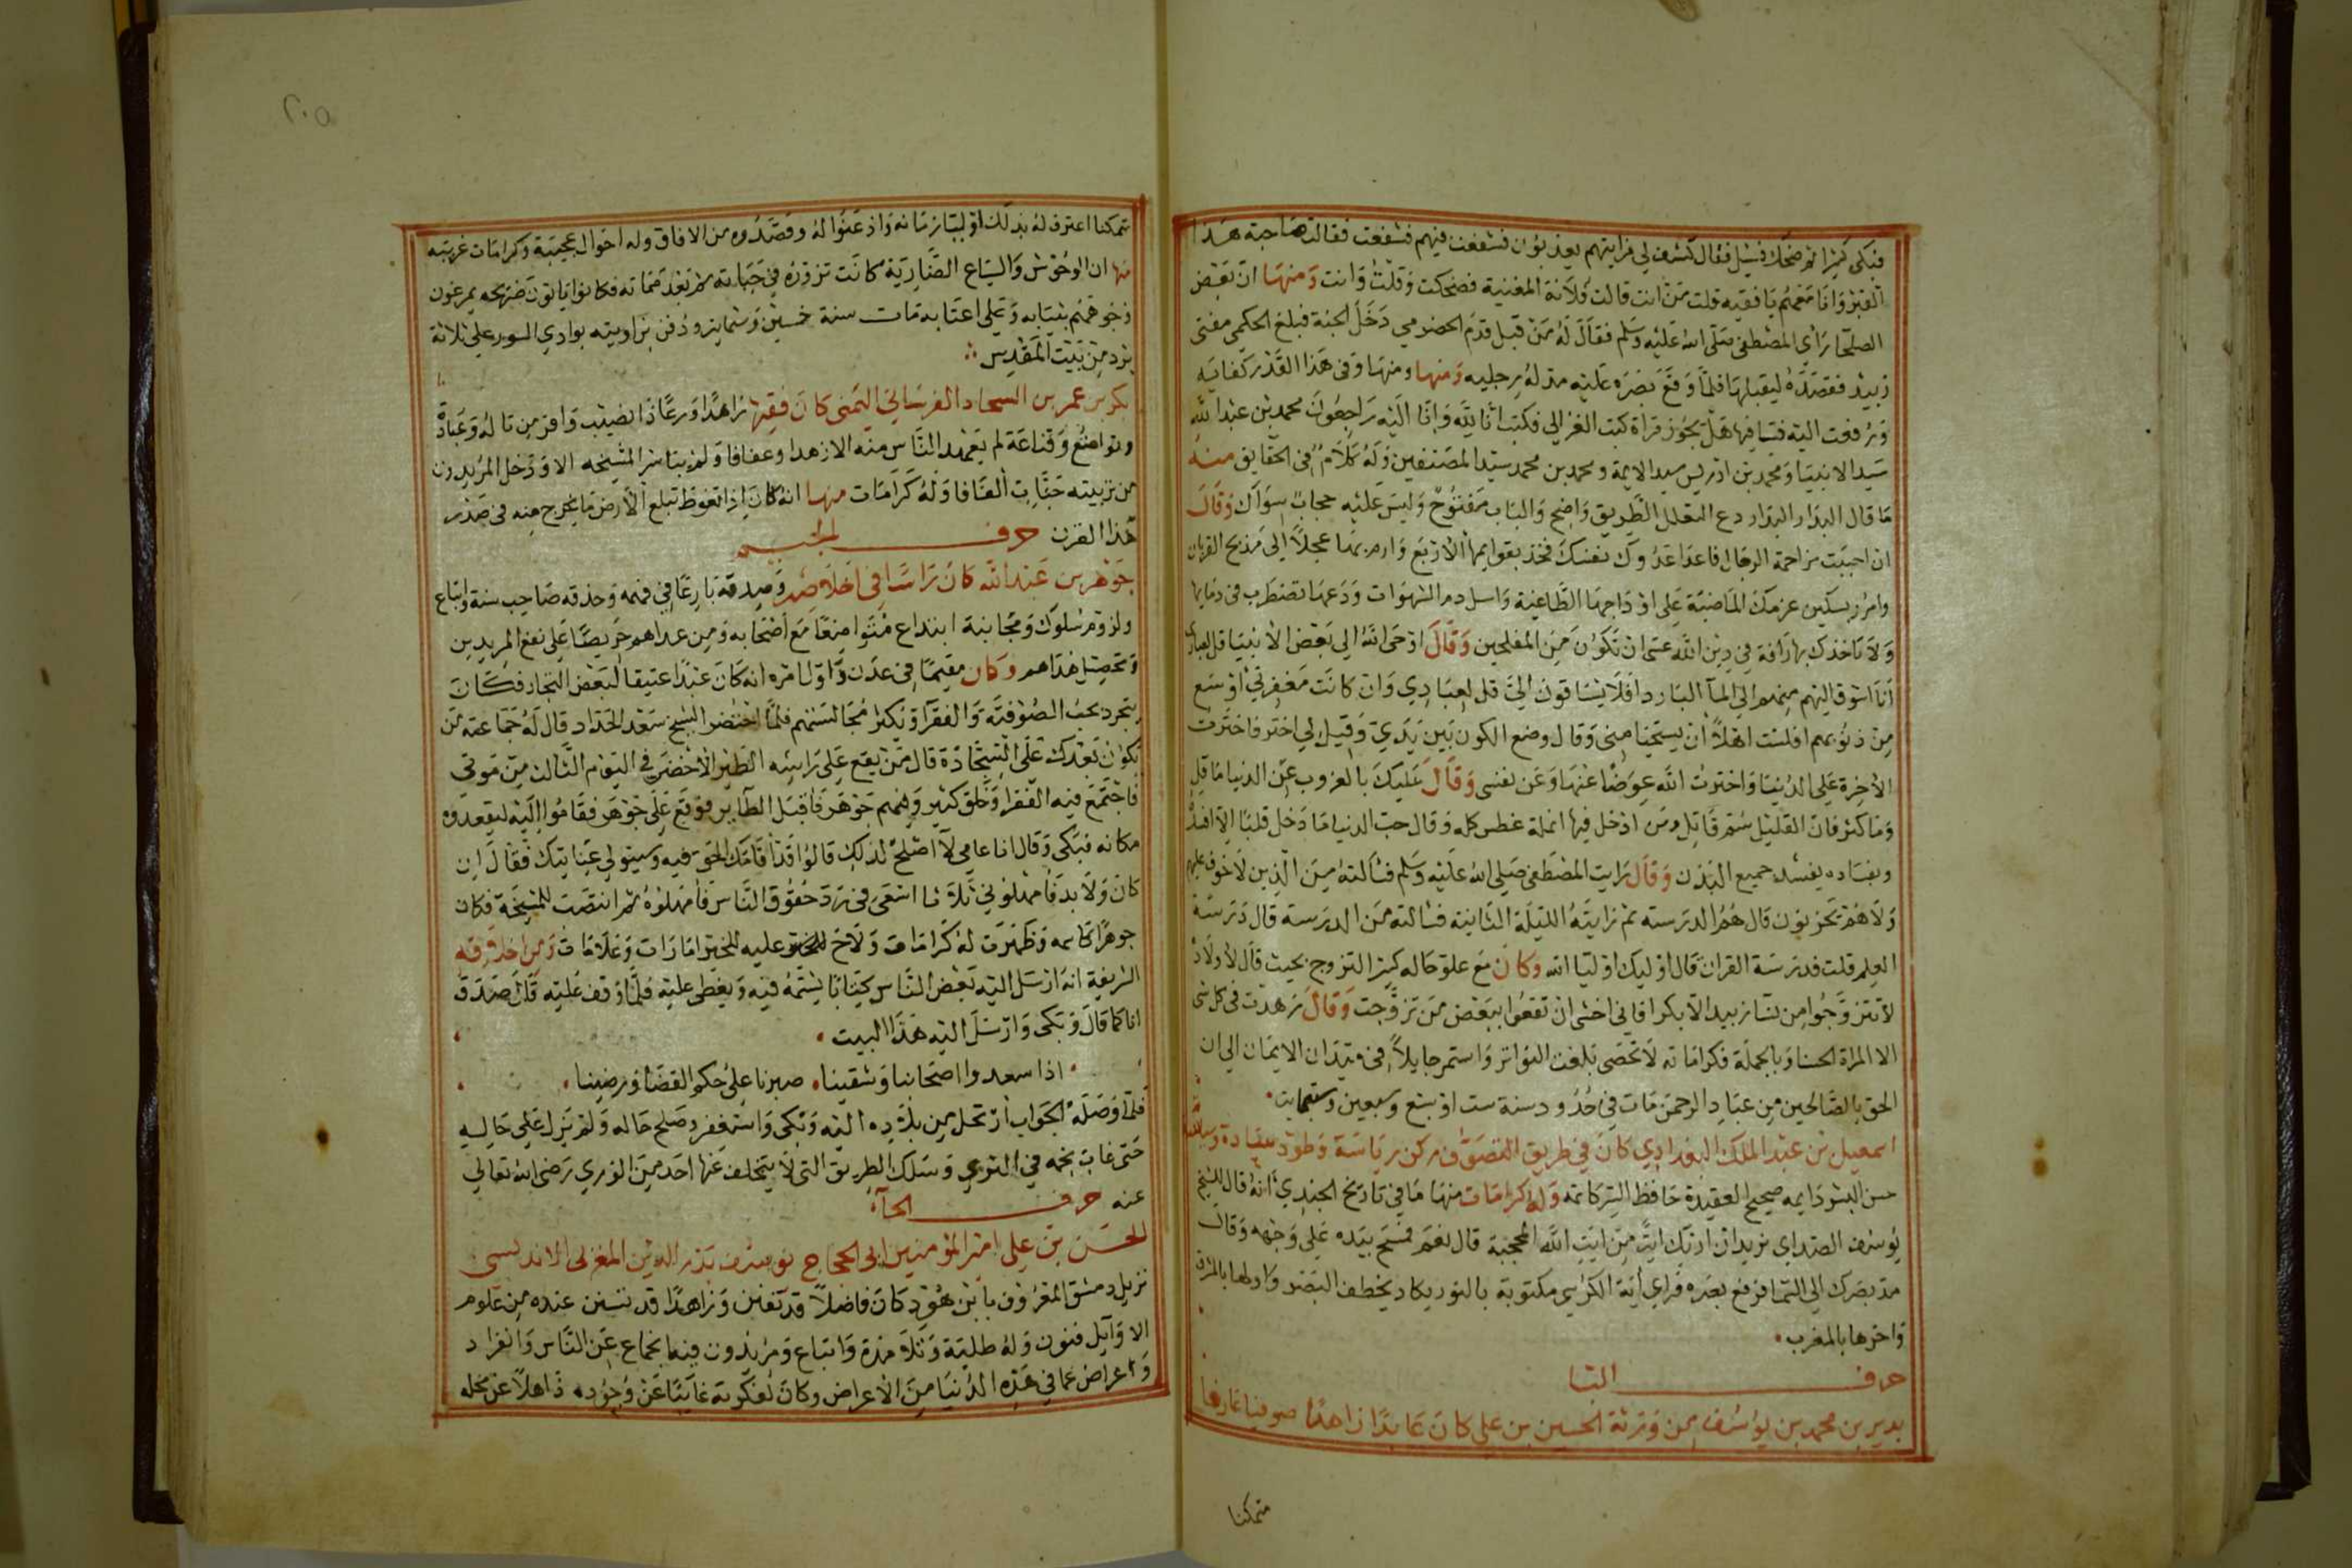 فبكى كثيرا ثم ضحك فسئل فقال كشف لي فرايتهم يعذبون فشفعت فيهم فشفعت فقالت صاحبة هذا
القبر وانا معهم يا فقيه قلت من انت قالت فلانة المغنية فضحكت وقلت وانت ومنها ان بعض
الصلحا راي المصطفى صلى الله عليه وسلم فقال له من قبل قدم الحضرمي دخل الجنة فبلغ الحكمي مفتى
زبيد فقصده ليقبلها فلما وقع بصره عليه مد له رجليه ومنها ومنها وفي هذا القدر كفايه
ورفعت اليه فتيا فيها هل يجوز قراة كتب الغزالى فكتب انا لله وانا اليه راجعون محمد بن عبد الله
سيد الانبيا ومحمد بن ادريس سيد الايمة ومحمد بن محمد سيد المصنفين وله كلام في الحقايق منه
ما قال البدار البدار دع التعلل الطريق واضح والباب مفتوح وليس عليه حجاب سواك وقال
ان احببت مزاحمة الرجال فاعد اعدوك نفسك فخذ بقوايمها الاربع وارم بها عجلا الى مذبح القربان
وامرر بسكين عزمك الماضية على اوداجها الطاغية واسل دم الشهوات ودعها تضطرب في دمايها
ولا تاخذك بها رافة في دين الله عسى ان تكون من المفلحين وقال اوحى الله الى بعض الانبيا قل لعبادي
انا اشوق اليهم منهم الى الما البارد افلا يشتاقون الي قل لعبادي وان كانت مغفرتي اوسع
من ذنوبهم افلست اهلا ان يستحيا مني وقال وضع الكون بين يدي وقيل لي اختر فاخترت
الاخرة على الدنيا واخترت الله عوضا عنها وعن نفسى وقال عليك بالعزوب عن الدنيا ما قل
وما كثر فان القليل سم قاتل ومن ادخل فيها انملة غطس كله وقال حب الدنيا ما دخل قلبا الا افسده
وبفساده يفسد جميع البدن وقال رايت المصطفى صلى الله عليه وسلم فسألته من الذين لا خوف عليهم
ولا هم يحزنون قال هم الدرسته ثم رايته الليلة الثانية فسالته من الدرسة قال درسة
العلم قلت فدرسة القران قال اوليك اوليا الله وكان مع علو حاله كثير التزوج بحيث قال لاولاده
لا تتزوجوا من نسا زبيد الا بكرا فاني اخشى ان تقعوا ببعض من تزوجت وقال زهدت في كل شي
الا المراة الحسنا وبالجملة فكراماته لا تحصى بلغت التواتر واستمر جايلا في ميدان الايمان الى ان
الحق بالصالحين من عباد الرحمن مات في حدود سنة ست او سبع وسبعين وستمايه
اسمعيل بن عبد الملك البغدادي كان في طريق التصوف ركن رياسة وطود سيادة
حسن البشر دايمه صحيح العقيدة حافظ السر كاتمه وله كرامات منها ما في تاريخ الجندي انه قال للشيخ
يوسف الصداي تريد ان اريك اية من ايات الله المحجبة قال نعم فمسح بيده على وجهه وقال
مد بصرك الى السما فرفع بصره فراي اية الكرسي مكتوبة بالنور يكاد يخطف البصر واولها بالمشرق
واخرها بالمغرب
حرف البا
بدير بن محمد بن يوسف من ورثة الحسين بن على كان عابدا زاهدا صوفيا عارفا
متمكنا
متمكنا اعترف له بذلك اوليا زمانه واذعنوا له وقصدوه من الافاق وله احوال عجيبة وكرامات غريبه
منها ان الوحوش والسباع الضارية كانت تزوره في حياته ثم بعد مماته فكانوا ياتون ضريحه يمرغون
وجوههم بثيابه وعلى اعتابه مات سنة خمسين وستمايه ودفن بزاويته بوادي السور على ثلاثة
برد من بيت المقدس
بكر بن عمر بن السحاد الفرساني اليمني كان فقيها زاهدا ورعا ذا نصيب وافر من تاله وعبادة
وتواضع وقناعة لم يعهد الناس منه الا زهدا وعفافا ولم يتاسر المشيخه الا ودخل المريدون
من تربيته جنات الفافا وله كرامات منها انه كان اذا تغوط تبلع الارض ما يخرج منه في صدر
هذا القرن حرف الجيم
جوهر بن عبد الله كان راسا في اخلاصه وصدقه بارعا في فهمه وحذقه صاحب سنة واتباع
ولزوم سلوك ومجانبة ابتداع متواضعا مع اصحابه ومن عداهم حريصا على نفع المريدين
وتحصيل هداهم وكان مقيما في عدن واول امره انه كان عبدا عتيقا لبعض التجار فكان
يتجرد بحب الصوفية والفقرا ويكثر مجالستهم فلما احتضر الشيخ سعد الحداد قال له جماعته من
يكون بعدك على السجادة قال من يقع على راسه الطير الاخضر في اليوم الثالث من موتى
فاجتمع فيه الفقرا وخلق كثير وفيهم جوهر فاقبل الطاير فوقع على جوهر فقاموا اليه ليقعدوه
مكانه فبكى وقال انا عامي لا اصلح لذلك قالوا قد اقامك الحق فيه وسيتولى عنايتك فقال ان
كان ولا بد فامهلوني ثلاثا اسعى في رد حقوق الناس فامهلوه ثم انتصب للمشيخة فكان
جوهرا كاسمه وظهرت له كرامات ولاح عليه للخير امارات وعلامات ومن اخلاقه
الشريفة انه ارسل اليه بعض الناس كتابا يشتمه فيه ويغطى عليه فلما وقف عليه قال صدق
انا كما قال وبكى وارسل اليه هذا البيت
اذا سعدوا اصحابنا وشقينا صبرنا على حكم القضا ورضينا
فلما وصله الجواب ارتحل من بلاده اليه وبكى واستغفر وصلح حاله ولم يزل على حاليه
حتى غاب نجمه في الثري وسلك الطريق التي لا يتخلف عنها احد من الوري رضي الله تعالي
عنه حرف الحآ
الحسن بن على امير المؤمنين ابى الحجاج يوسف بدر الدين المغربى الاندلسى
نزيل دمشق المعروف بابن هود كان فاضلا قد تفنن وزاهدا قد تسنن عنده من علوم
الاوآيل فنون وله طلبة وتلامذة واتباع ومريدون فيه انجماع عن الناس وانفراد
واعراض عما في هذه الدنيا من الاعراض وكان لفكرته غايبا عن وجوده ذاهلا عن بخله